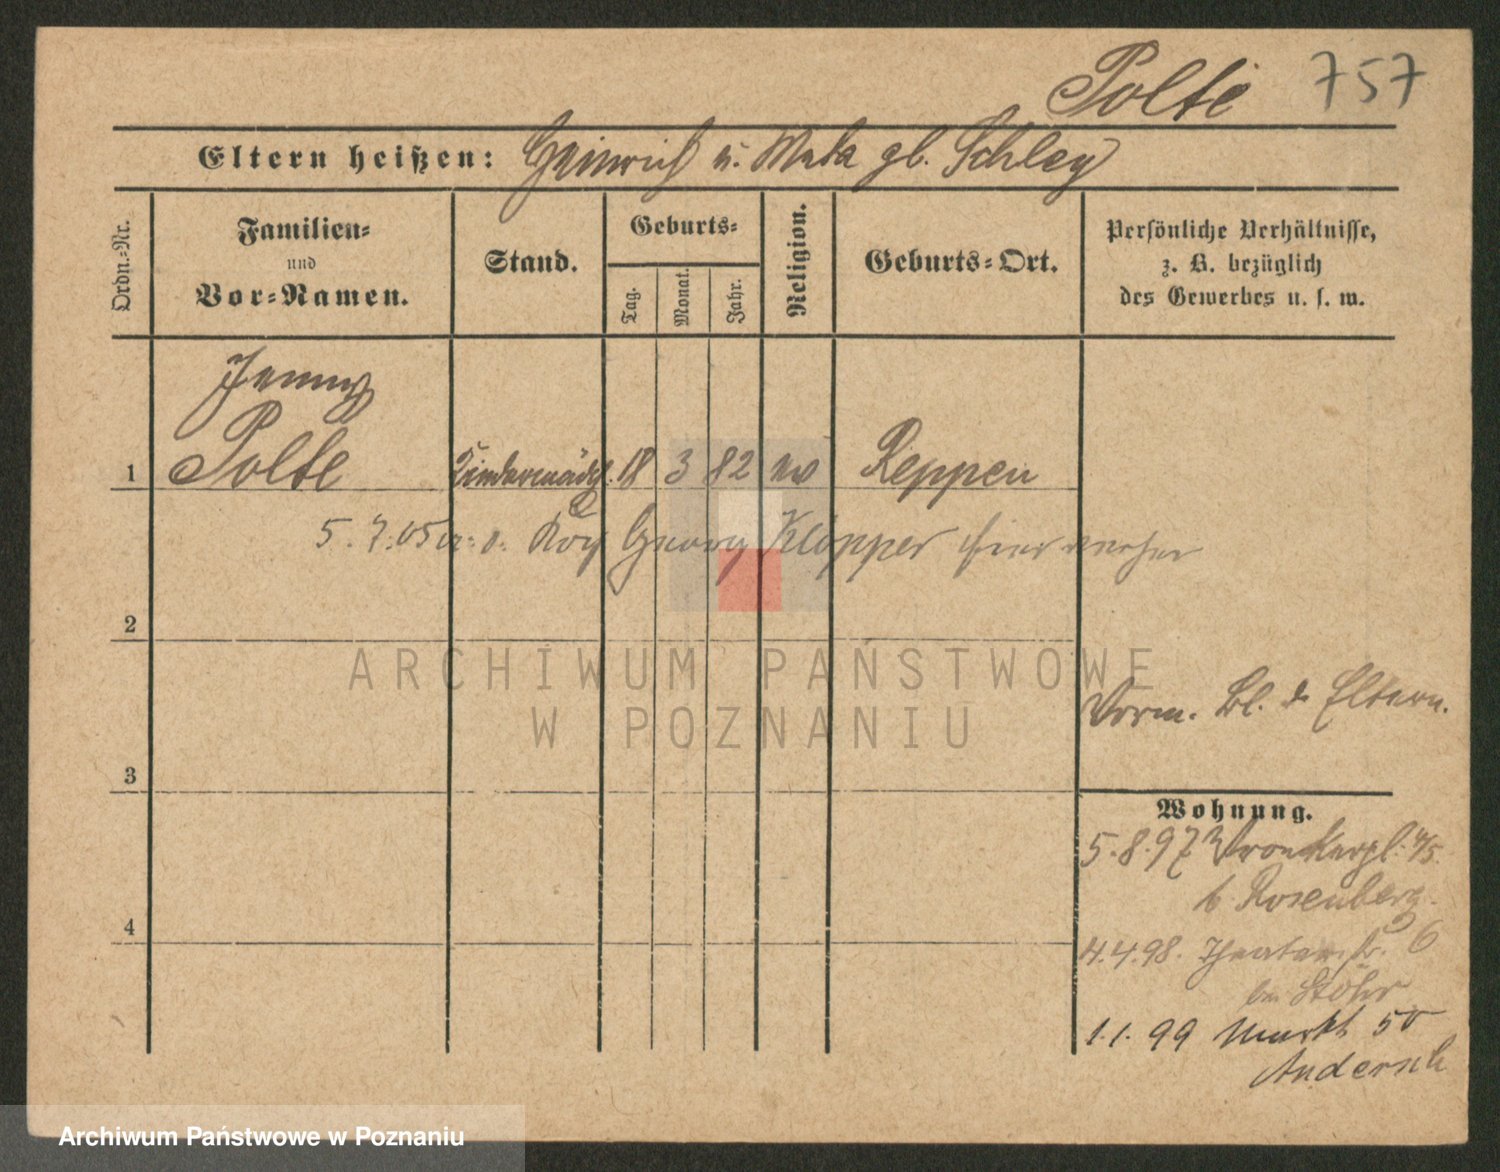 Polte 757
Eltern heißen: Heinrich u. Meta gb. Schley
Ordn.-Nr.
Familien-
und
Vor-Namen.
Stand.
Geburts-
Tag.
Monat.
Jahr.
Religion.
Geburts-Ort.
Persönliche Verhältnisse,
z. B. bezüglich
des Gewerbes u. s. w.
Jenny
1 Polte Kindermädch. 18 3 82 ev Reppen
5.7.05 Georg Klöpper hier
2
ARCHIWUM PAŃSTWOWE
W POZNANIU
Vorm. Bl. d Eltern.
3
Wohnung.
5.8.97 Wronkerpl. 4/5
b Rosenberg.
4
4.4.98. Theaterstr. 6
bei Stöhr
1.1.99 Markt 50
Andersch
Archiwum Państwowe w Poznaniu